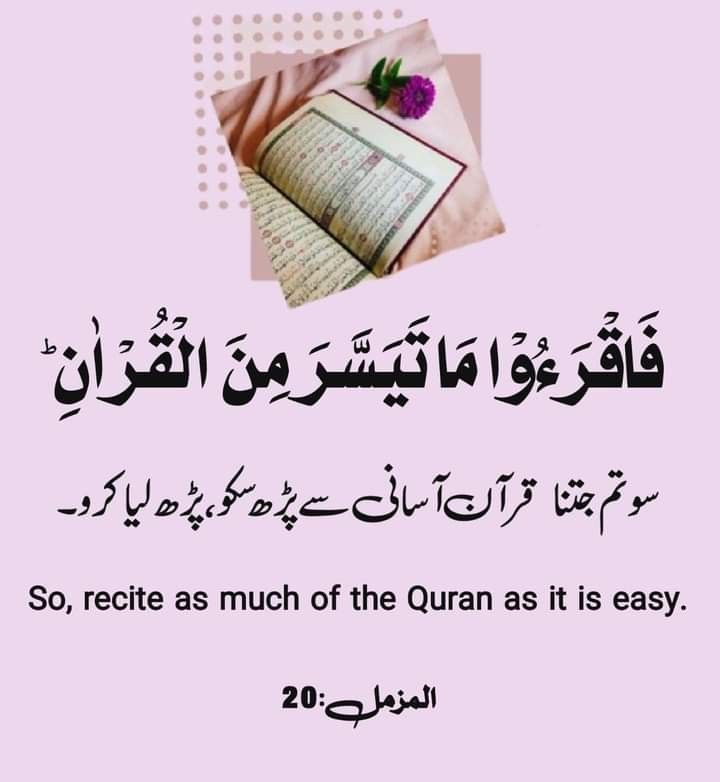 فَاقْرَءُوْا مَا تَيَسَّرَ مِنَ الْقُرْاٰنِ ؕ
سو تم جتنا قرآن آسانی سے پڑھ سکو، پڑھ لیا کرو۔
So, recite as much of the Quran as it is easy.
المزمل:20